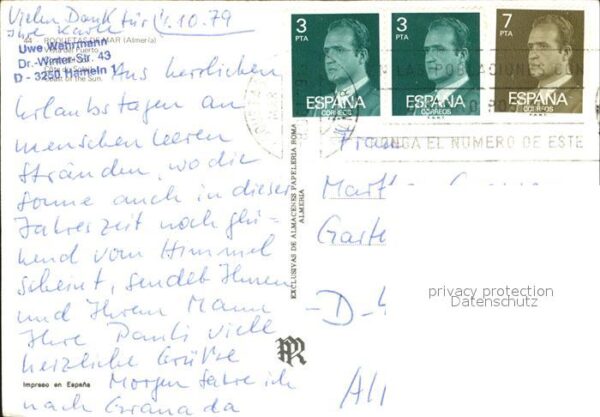 Vielen Dank für 1.10.79
Ihre Karte
44 - ROQUETAS DE MAR (Almería)
Vista del Puerto
Uwe Wehrmann
Dr.-Winter-Str. 43
D - 3250 Hameln 1
of the Sun.
Aus herrlichen
Urlaubstagen an
menschenleeren
Stränden, wo die
Sonne auch in dieser
Jahreszeit noch glü-
hend vom Himmel
scheint, sendet Ihnen
und Ihrem Mann
Ihre Pauli viele
herzliche Grüße
Morgen fahre ich
nach Granada
Impreso en España
EXCLUSIVAS DE ALMACENES PAPELERIA ROMA
ALMERIA
3 PTA
ESPAÑA
CORREOS
3 PTA
ESPAÑA
CORREOS
7 PTA
ESPAÑA
CORREOS
PONGA EL NUMERO DE ESTE
Frau
Mart
Garte
-D-
privacy protection
Datenschutz